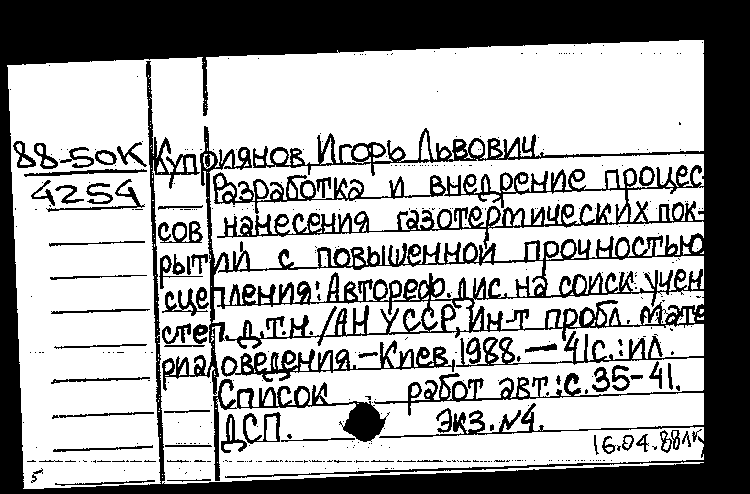 88-50К Куприянов, Игорь Львович.
4254 Разработка и внедрение процес-
сов нанесения газотермических пок-
рытий с повышенной прочностью
сцепления: Автореф. дис. на соиск. учен
степ. д.т.н. /АН УССР, Ин-т пробл. мате
риаловедения. – Киев, 1988. – 41с.: ил.
Список работ авт.: с. 35-41.
ДСП. Экз. №4.
16.04.88
5